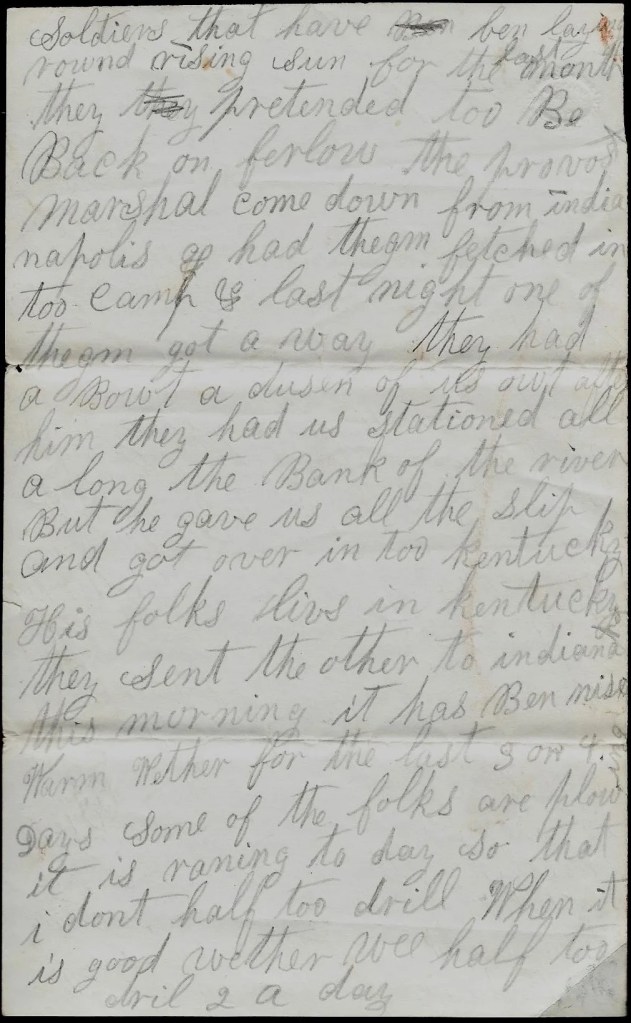 Soldiers that have ben laying
round rising Sun for the last month
they they pretended too Be
Back on ferlow the provost
marshal come down from india
napolis & had thegm fetched in
too Camp & last night one of
thegm got a way they had
a Bowt a dusen of us owt after
him they had us stationed all
a long the Bank of the river
But he gave us all the slip
and got over in too kentucky
His folks livs in kentucky
they sent the other to indiana
this morning it has Ben nise
Warm Wether for the last 3 or 4
Days some of the folks are plow
it is raning to day so that
i dont half too drill When it
is good wether wee half too
dril 2 a day